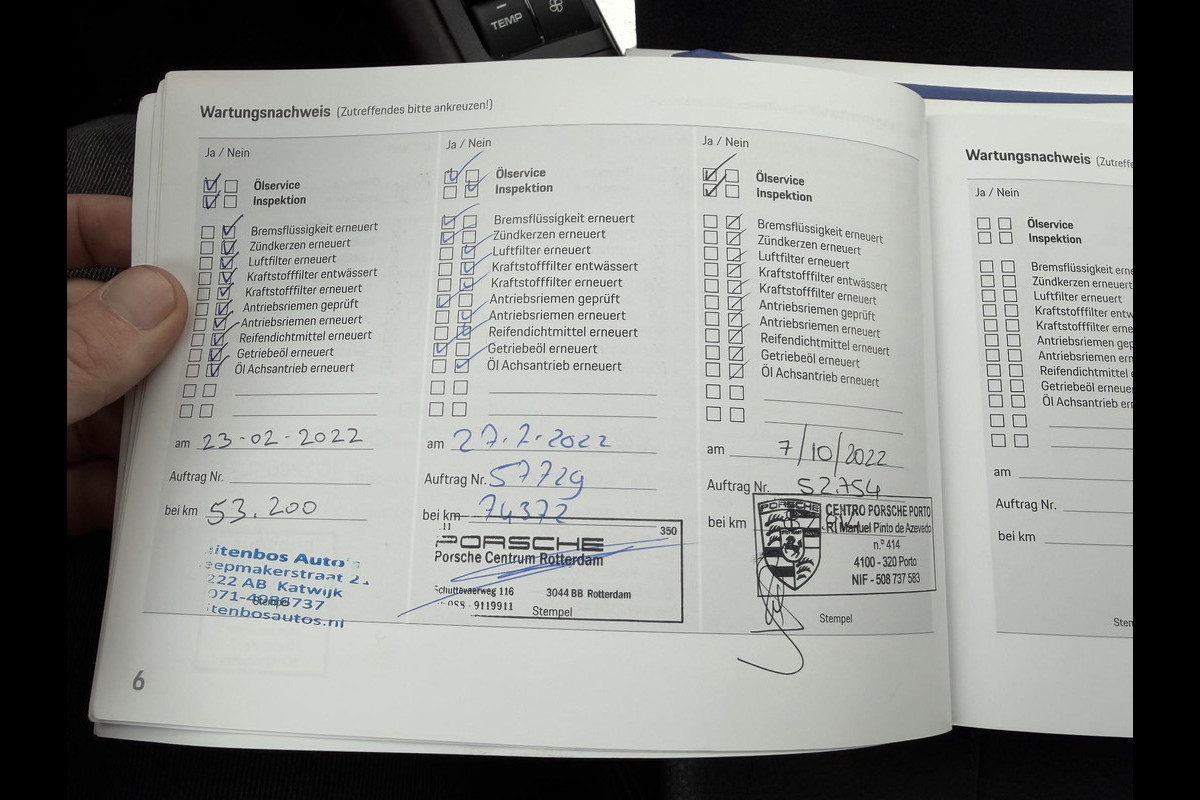 TEMP
Wartungsnachweis (Zutreffendes bitte ankreuzen!)
Ja / Nein
Ölservice
Inspektion
Bremsflüssigkeit erneuert
Zündkerzen erneuert
Luftfilter erneuert
Kraftstofffilter entwässert
Kraftstofffilter erneuert
Antriebsriemen geprüft
Antriebsriemen erneuert
Reifendichtmittel erneuert
Getriebeöl erneuert
Öl Achsantrieb erneuert
am 23-02-2022
Auftrag Nr.
bei km 53.200
itenbos Auto's
eepmakerstraat 2
222 AB Katwijk
071-4086737
Stempel
tenbosautos.nl
Ja / Nein
Ölservice
Inspektion
Bremsflüssigkeit erneuert
Zündkerzen erneuert
Luftfilter erneuert
Kraftstofffilter entwässert
Kraftstofffilter erneuert
Antriebsriemen geprüft
Antriebsriemen erneuert
Reifendichtmittel erneuert
Getriebeöl erneuert
Öl Achsantrieb erneuert
am 27.7.2022
Auftrag Nr. 57729
bei km 74372
.11 350
PORSCHE
Porsche Centrum Rotterdam
Schuttevaerweg 116 3044 BB Rotterdam
088 - 9119911
Stempel
Ja / Nein
Ölservice
Inspektion
Bremsflüssigkeit erneuert
Zündkerzen erneuert
Luftfilter erneuert
Kraftstofffilter entwässert
Kraftstofffilter erneuert
Antriebsriemen geprüft
Antriebsriemen erneuert
Reifendichtmittel erneuert
Getriebeöl erneuert
Öl Achsantrieb erneuert
am 7/10/2022
Auftrag Nr. 52.754
bei km
PORSCHE
CENTRO PORSCHE PORTO
R. Manuel Pinto de Azevedo
n.º 414
4100 - 320 Porto
NIF - 508 737 583
Stempel
6
Wartungsnachweis (Zutreffe
Ja / Nein
Ölservice
Inspektion
Bremsflüssigkeit erne
Zündkerzen erneuert
Luftfilter erneuert
Kraftstofffilter entw
Kraftstofffilter erneu
Antriebsriemen gep
Antriebsriemen ern
Reifendichtmittel e
Getriebeöl erneuer
Öl Achsantrieb erne
am
Auftrag Nr.
bei km
Stem